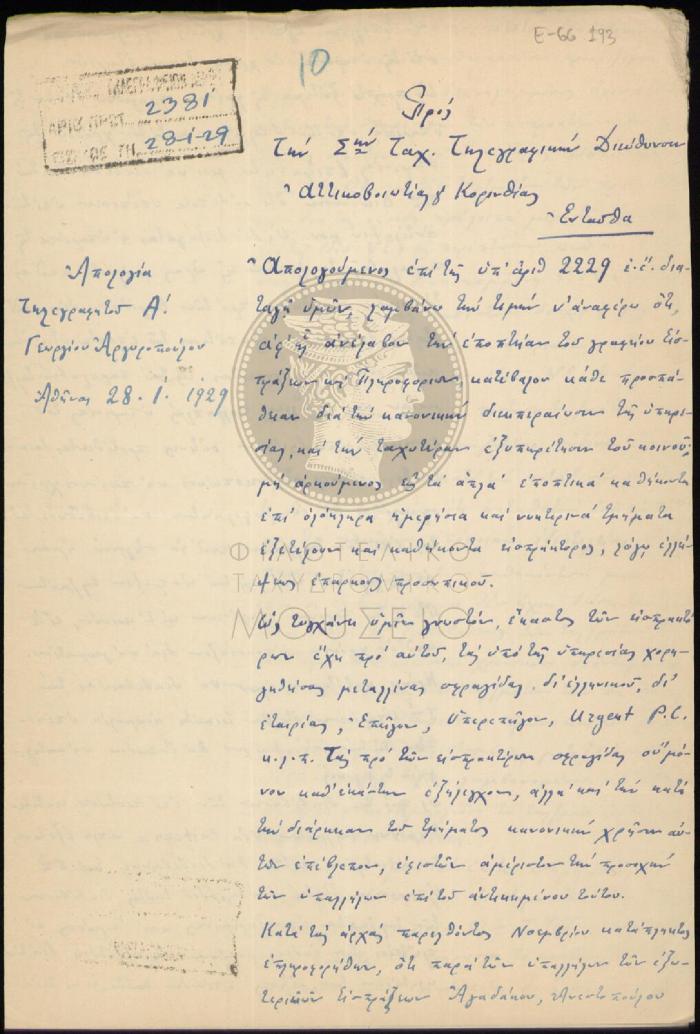 E-66 193
10
ΑΡΙΘ ΠΡΩΤ. 2381
28-1-29
Πρός
Τήν Σην Ταχ. Τηλεγραφικήν Διεύθυνσιν
Ἀττικοβοιωτίας & Κορινθίας
Ἐνταῦθα
Ἀπολογία
Τηλεγραφητοῦ Α!
Γεωργίου Ἀργυροπούλου
Ἀθῆναι 28.1.1929
Ἀπολογούμενος ἐπί τῆς ὑπ' ἀριθ 2229 ἐ.ἔ. δια-
ταγῆς ὑμῶν, λαμβάνω τήν τιμήν ν' ἀναφέρω ὅτι,
ἀφ' ἧς ἀνέλαβον τήν ἐποπτείαν τοῦ γραφείου Εἰσ-
πράξεων καί Πληροφοριῶν κατέβαλον κάθε προσπά-
θειαν διά τήν κανονικήν διεκπεραίωσιν τῆς ὑπηρε-
σίας, καί τήν ταχυτέραν ἐξυπηρέτησιν τοῦ κοινοῦ,
μή ἀρκούμενος εἰς τά ἁπλά ἐποπτικά καθήκοντα
ἐπί ὁλόκληρα ἡμερήσια καί νυκτερινά τμήματα
ἐξετέλουν καί καθήκοντα εἰσπράκτορος, λόγῳ ἐλλεί-
ψεως ἐπαρκοῦς προσωπικοῦ.
Ὡς τυγχάνει ὑμῖν γνωστόν, ἕκαστος τῶν εἰσπρακτό-
ρων ἔχει πρό αὐτοῦ, τάς ὑπό τῆς ὑπηρεσίας χορη-
γηθείσας μεταλλίνας σφραγίδας. δι' ἑλληνικοῦ, δι'
ἑταιρίας, Ἐπείγον, Ὑπερεπείγον, Urgent P.C.
κ.λ.π. Τάς πρό τῶν εἰσπρακτόρων σφραγίδας οὐ μό-
νον καθ' ἑκάστην ἐξήλεγχον, ἀλλά καί τήν κατά
τήν διάρκειαν τοῦ τμήματος κανονικήν χρῆσιν αὐ-
τῶν ἐπέβλεπον, ἐφιστῶν ἀμέριστον τήν προσοχήν
τῶν ὑπαλλήλων ἐπί τοῦ ἀντικειμένου τούτου.
Κατά τάς ἀρχάς παρελθόντος Νοεμβρίου κατάπληκτος
ἐπληροφορήθην, ὅτι παρά τῶν ὑπαλλήλων τῶν ἐξω-
τερικῶν Εἰσπράξεων Ἀγαδάκου, Ἀναστοπούλου
ΦΙΛΟΤΕΛΙΚΟ
ΤΑΧΥΔΡΟΜΙΚΟ
ΜΟΥΣΕΙΟ